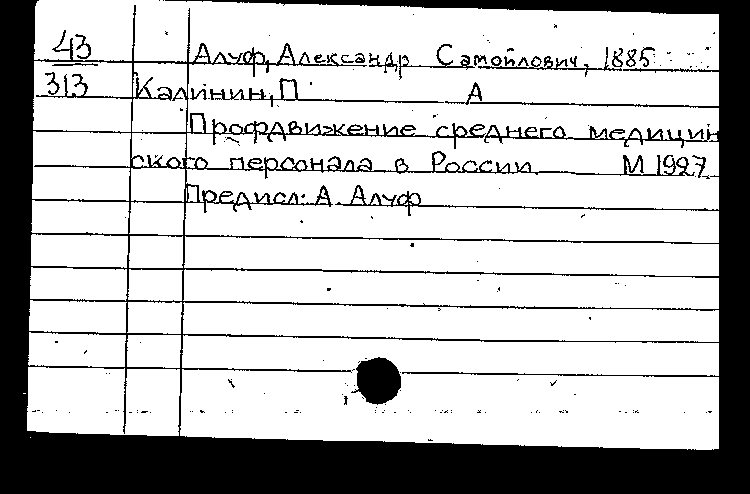 43 Алуф, Александр Самойлович, 1885
313 Калинин, П А
Профдвижение среднего медицин
ского персонала в России М 1927
Предисл: А. Алуф